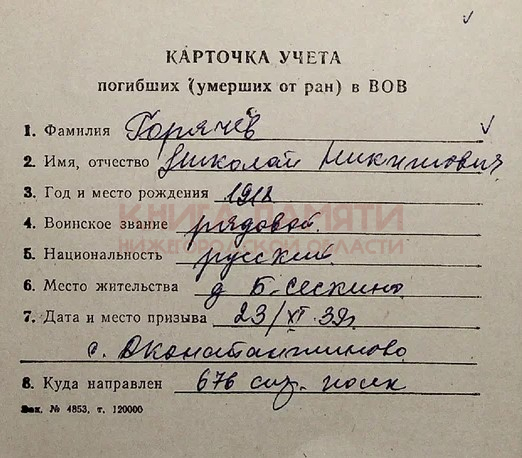 КАРТОЧКА УЧЕТА
погибших (умерших от ран) в ВОВ
1. Фамилия Горячев
2. Имя, отчество Николай Никитович
3. Год и место рождения 1918
КНИГА ПАМЯТИ
4. Воинское звание рядовой
НИЖЕГОРОДСКОЙ ОБЛАСТИ
5. Национальность русский
6. Место жительства д Б-Сескино
7. Дата и место призыва 23/XI 39г.
с. Дконстантиново
8. Куда направлен 676 полк
Зак. № 4853, т. 120000